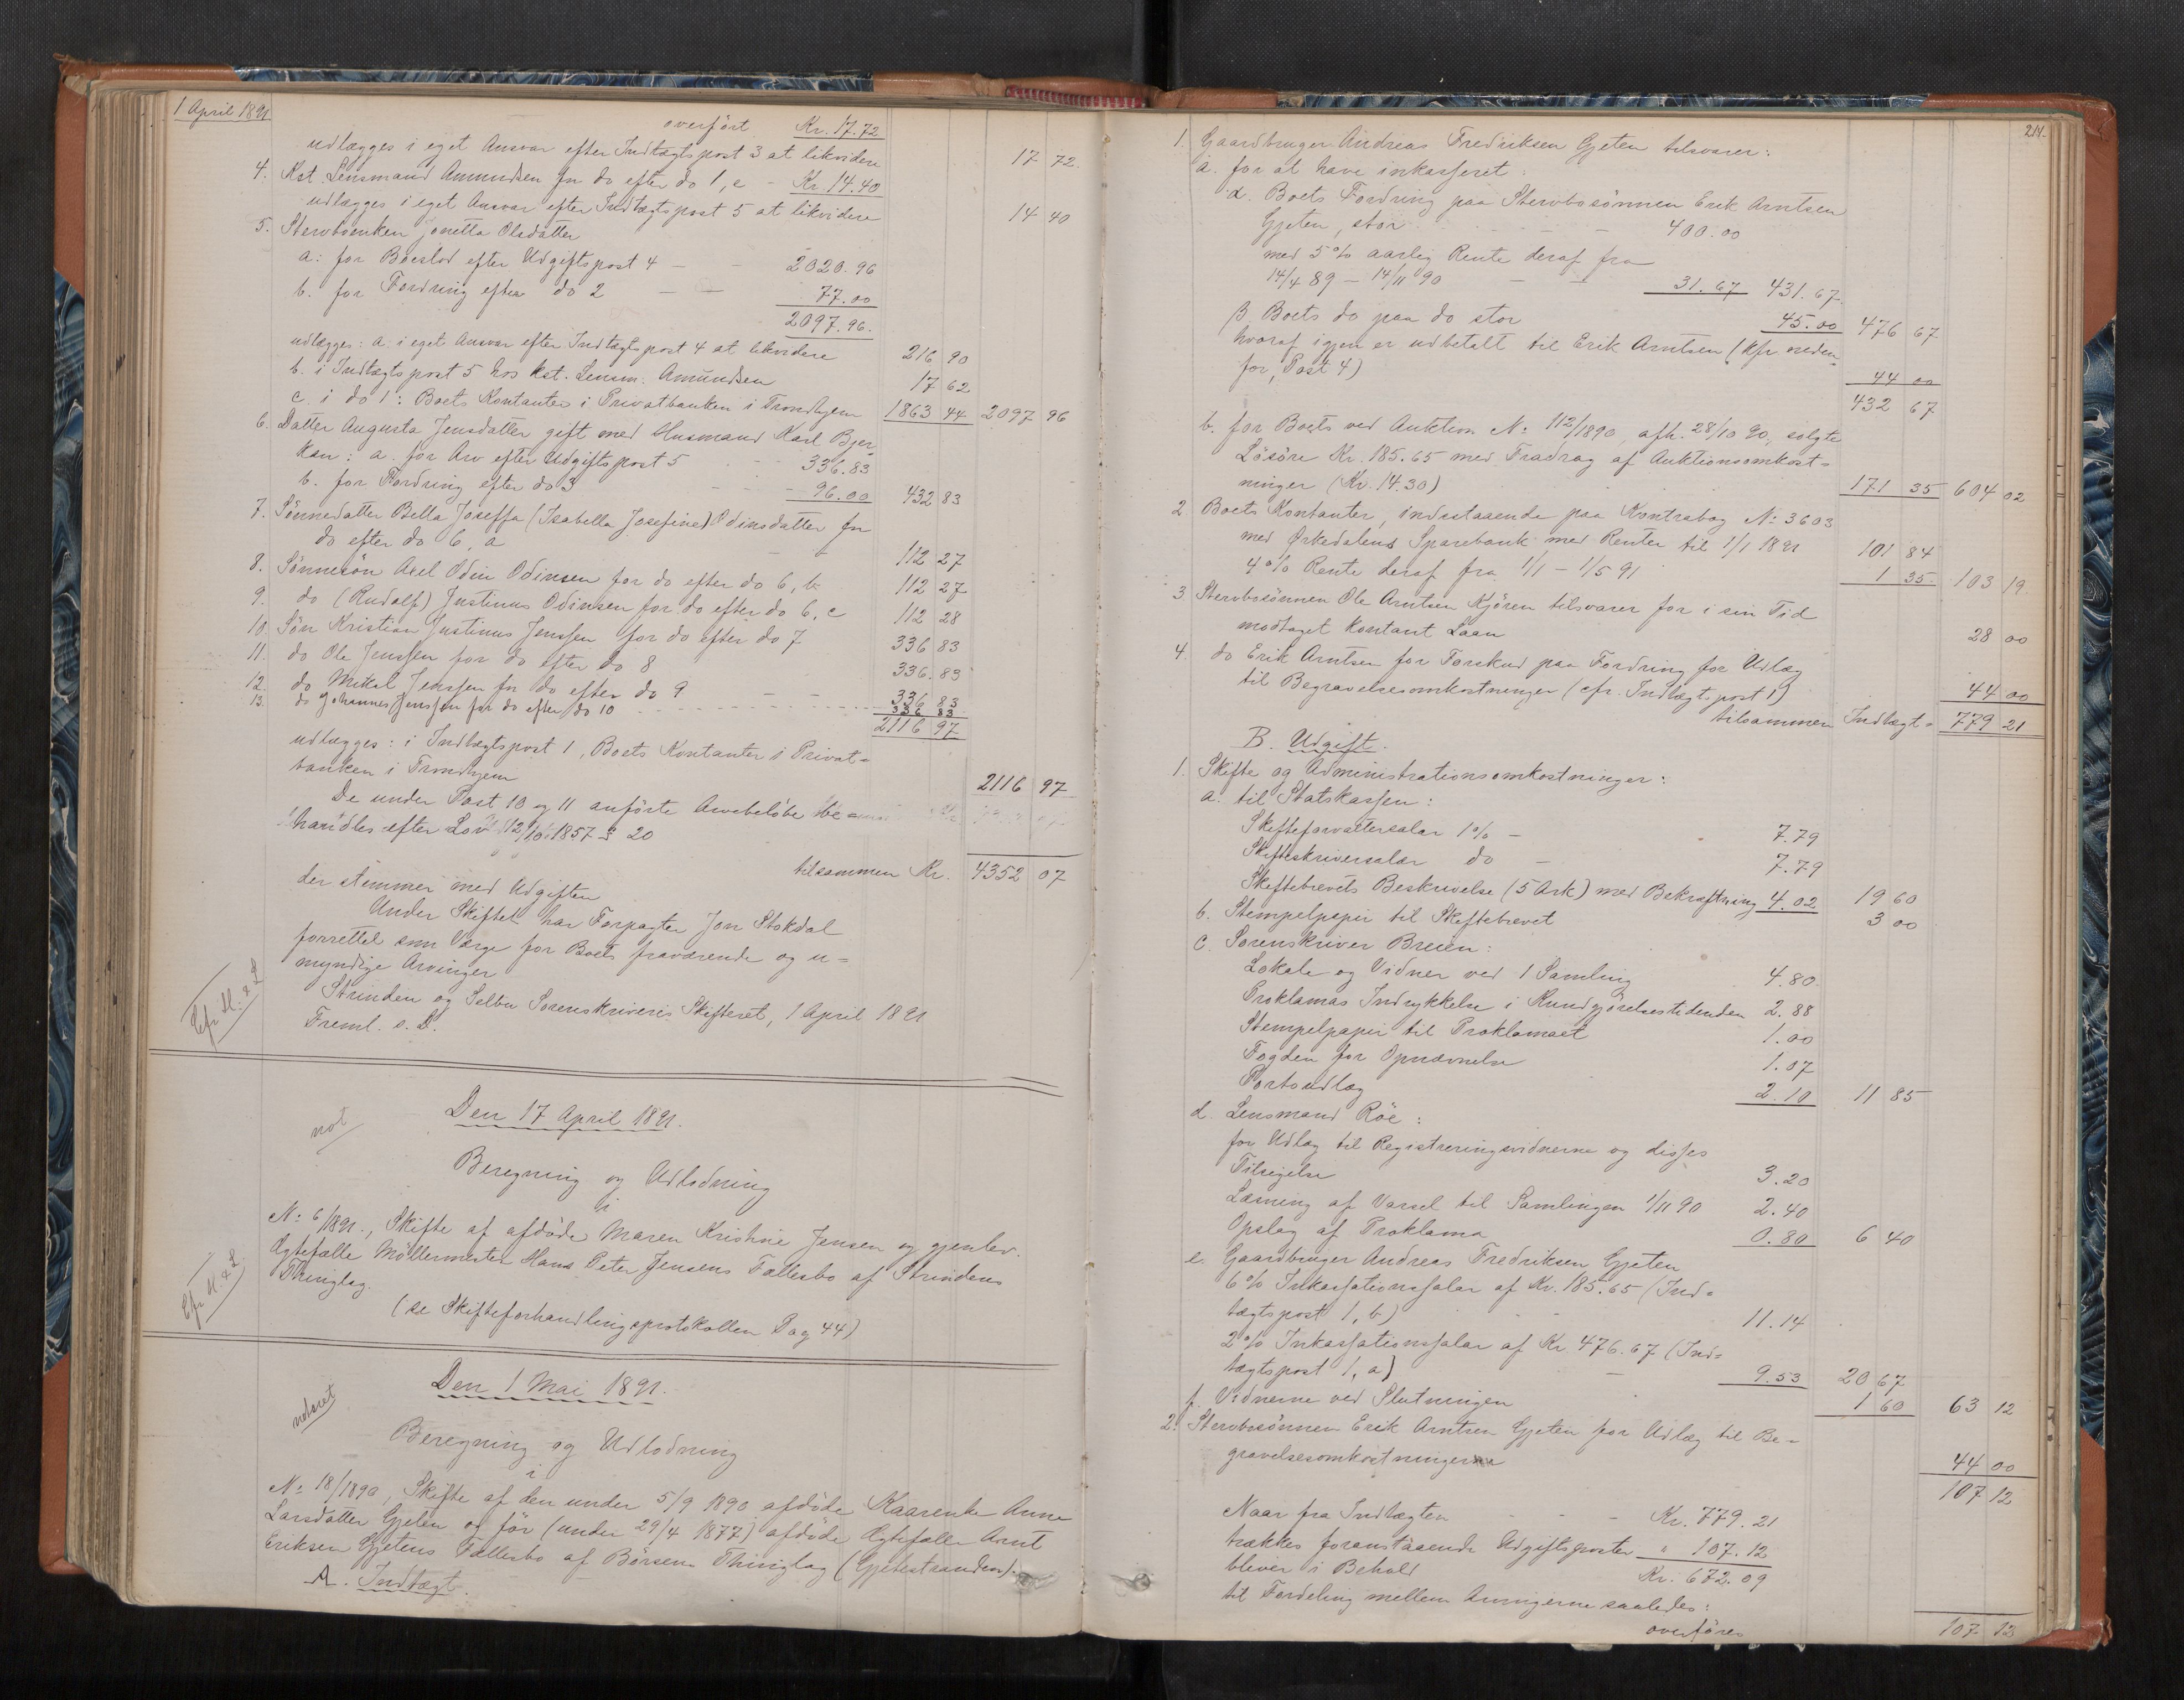 1 April 1891.
overført Kr. 17.72
udlægges i eget Ansvar efter Indtægtspost 3 at likvidere 17 72.
4. Kst. Lensmand Amundsen for do efter do 1, e - Kr. 14.40
udlægges i eget Ansvar efter Indtægtspost 5 at likvidere 14 40
5. Stervboenken Jonetta Olsdatter
a: for Boeslod efter Udgiftspost 4 - - 2020.96
b. for Fordring efter do 2 - - 77.00
2097.96.
udlægges: a. i eget Ansvar efter Indtægtspost 4 at likvidere 216 90
b. i Indtægtspost 5 hos kst. Lensm. Amundsen 17 62
c. i do 1: Boets Kontanter i Privatbanken i Trondhjem 1863 44 2097 96
6. Datter Augusta Jensdatter gift med Husmand Karl Bjer-
kan: a. for Arv efter Udgiftspost 5 - - 336.83
b. for Fordring efter do 3 - - - 96.00 432 83
7. Sønnedatter Bella Joseffa (Isabella Josefine) Odinsdatter for
do efter do 6, a - - 112 27
8. Sønnesøn Axel Odin Odinsen for do efter do 6, b 112 27
9. do (Rudolf) Justinus Odinsen for do efter do 6, c 112 28
10. Søn Kristian Justinus Jenssen for do efter do 7 336 83
11. do Ole Jenssen for do efter do 8 336.83
12. do Mikal Jenssen for do efter do 9 - - 336 83
13. do Johannes Jenssen for do efter do 10 - - - 336 83
2116 97
udlægges: i Indtægtspost 1, Boets Kontanter i Privat-
banken i Trondhjem 2116 97
De under Post 10 og 11 anførte Arvebeløbe be-
handles efter Lov 12/10 1857 § 20
tilsammen Kr. 4352 07
der stemmer med Udgiften
Under Skiftet har Forpagter Jon Stokdal
forrettet som Værge for Boets fraværende og u-
myndige Arvinger
Strinden og Selbu Sorenskriveris Skifteret, 1 April 1891
Freml. s. D.
Cfr. M. & L.
Den 17 April 1891.
not
Beregning og Udlodning
i
No 6/1891., Skifte af afdøde Maren Kristine Jensen og gjenlev.
Ægtefælle Møllermester Hans Peter Jensens Fællesbo af Strindens
Thinglag.
(se Skifteforhandlingsprotokollen Pag 44)
Cfr. M. & L.
Den 1 Mai 1891.
noteret
Beregning og Udlodning
i
No 18/1890, Skifte af den under 5/9 1890 afdøde Kaarenke Anne
Larsdatter Gjeten og før (under 29/4 1877) afdøde Ægtefælle Arnt
Eriksen Gjetens Fællesbo af Børsens Thinglag (Gjetestranden).
A. Indtægt.
214.
1. Gaardbruger Andreas Fredriksen Gjeten tilsvarer:
a. for at have inkasseret:
α. Boets Fordring paa Stervbosønnen Erik Arntsen
Gjeten, stor - - - 400.00
med 5% aarlig Rente deraf fra
14/4 89 - 14/11 90 - - 31.67 431.67.
β Boets do paa do stor 45.00 476 67
hvoraf igjen er udbetalt til Erik Arntsen (kfr. neden-
for, Post 4) 44 00
432 67
b. for Boets ved Auktion No 112/1890, afh. 28/10 90, solgte
Løsøre Kr. 185.65 med Fradrag af Auktionsomkost-
ninger (Kr. 14.30) 171 35 604 02
2. Boets Kontanter, indestaaende paa Kontrabog No 3603
med Ørkedalens Sparebank med Renter til 1/1 1891 101 84
4% Rente deraf fra 1/1 - 1/5 91 1 35 103 19.
3. Stervbosønnen Ole Arntsen Kjøren tilsvarer for i sin Tid
modtaget kontant Laan 28 00
4. do Erik Arntsen for Forskud paa Fordring for Udlæg
til Begravelsesomkostninger (cfr. Indtægtspost 1) 44 00
tilsammen Indtægt - 779 21
B. Udgift.
1. Skifte og Administrationsomkostninger:
a. til Statskassen:
Skifteforvaltersalær 1% - 7.79
Skifteskriversalær do - 7.79
Skiftebrevets Beskrivelse (5 Ark) med Bekræftning 4.02 19 60
b. Stempelpapir til Skiftebrevet 3 00
c. Sorenskriver Breien:
Lokale og Vidner ved 1 Samling 4.80.
Proklamas Indrykkelse i Kundgjørelsestidenden 2.88
Stempelpapir til Proklamaet 1.00
Fogden for Opnævnelse 1.07
Portoudlæg 2.10 11 85
d. Lensmand Røe:
for Udlæg til Registreringsvidnerne og disses
Tilsigelse 3.20
Læsning af Varsel til Samlingen 1/11 90 2.40
Opslag af Proklama 0.80 6 40
e. Gaardbruger Andreas Fredriksen Gjeten
6% Inkassationssalær af Kr. 185.65 (Ind-
tægtspost 1, b) 11.14
2% Inkassationssalær af Kr. 476.67 (Ind-
tægtspost 1, a) - 9.53 20 67
f. Vidnerne ved Slutningen 1 60 63 12
2. Stervbosønnen Erik Arntsen Gjeten for Udlæg til Be-
gravelsesomkostningerne 44 00
107 12
Naar fra Indtægten - - - Kr. 779.21
trækkes foranstaaende Udgiftsposter " 107.12
bliver i Behold Kr. 672.09
til Fordeling mellem Arvingerne saaledes:
overføres 107 12